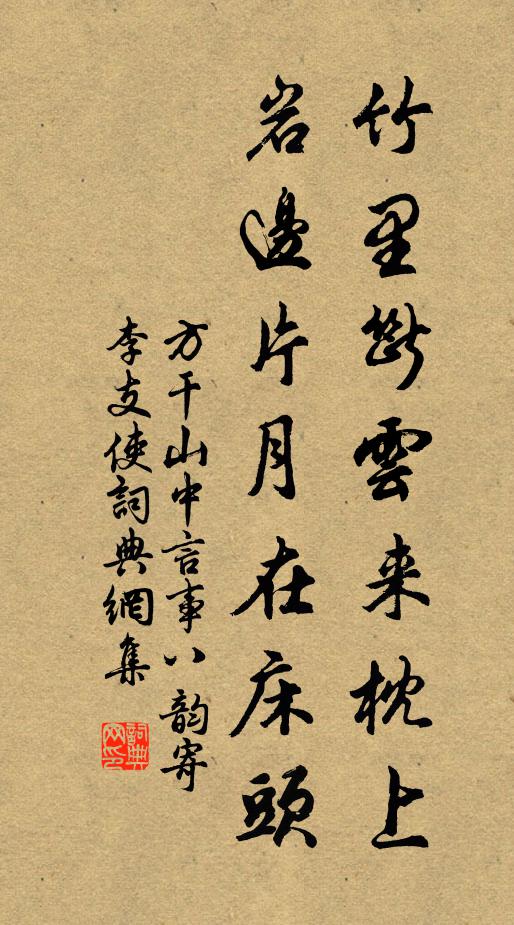 竹里斷雲来枕上
岩邊片月在床頭
方干山中言事八韵寄
李支使詞典網集
詞典网印